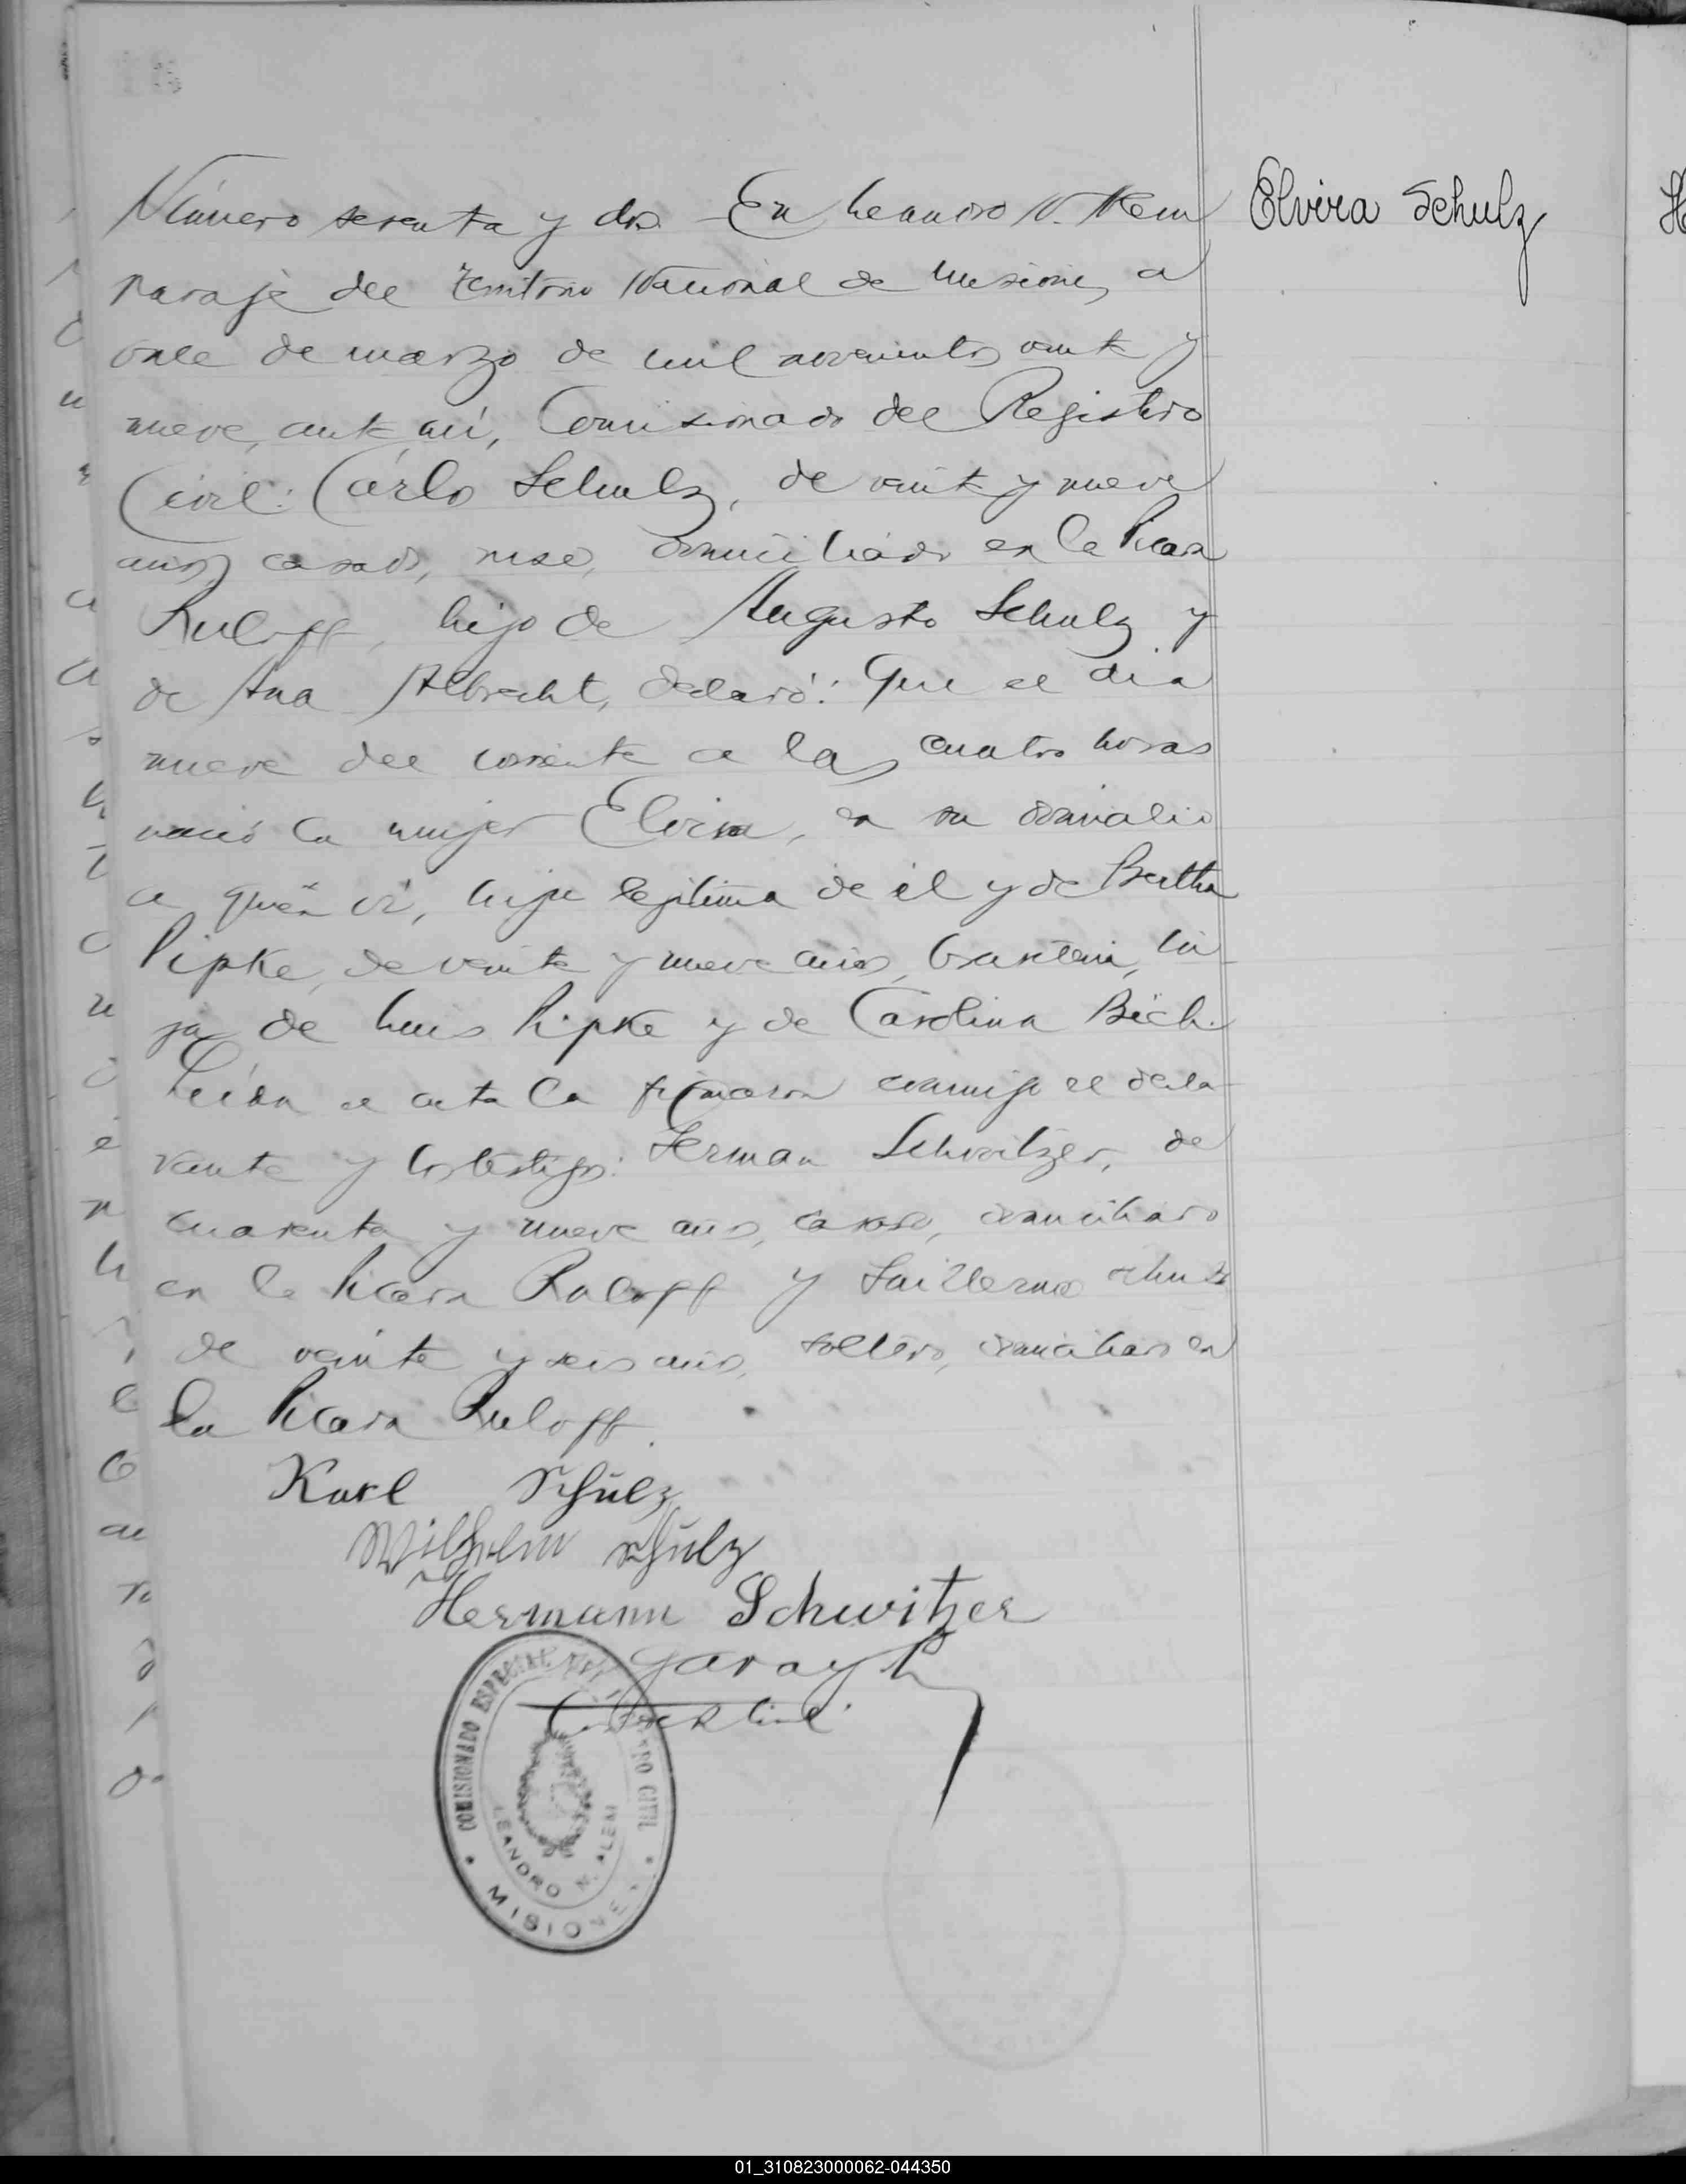 Elvira Schulz
Número setenta y dos En Leandro N. Alem
paraje del territorio Nacional de Misiones, a
once de marzo de mil novecientos veinte y
nueve, ante mí, Comisionado del Registro
Civil: Cárlos Schulz, de veinte y nueve
años, casado, ruso, domiciliado en la Picada
Ruloff, hijo de Augusto Schulz y
de Ana Albrecht, declaró: Que el dia
nueve del corriente a las cuatro horas
nació la mujer Elvira, en su domicilio
a quién ví, hija legítima de él y de Bertha
Pipke, de veinte y nueve años, hi
ja de Luis Pipke y de Carolina Béch.
Leída el acta la firmaron conmigo el decla
rante y los testigos: German Schwitzer, de
cuarenta y nueve años, casado, domiciliado
en la Picada Ruloff y Guillermo Schulz
de veinte y seis años, soltero, domiciliado en
la Picada Ruloff.
Karl Schulz
Wilhelm Schulz
Hermann Schwitzer
Garay
COMISIONADO ESPECIAL DEL REGISTRO CIVIL
LEANDRO N. ALEM
MISIONES
01_310823000062-044350